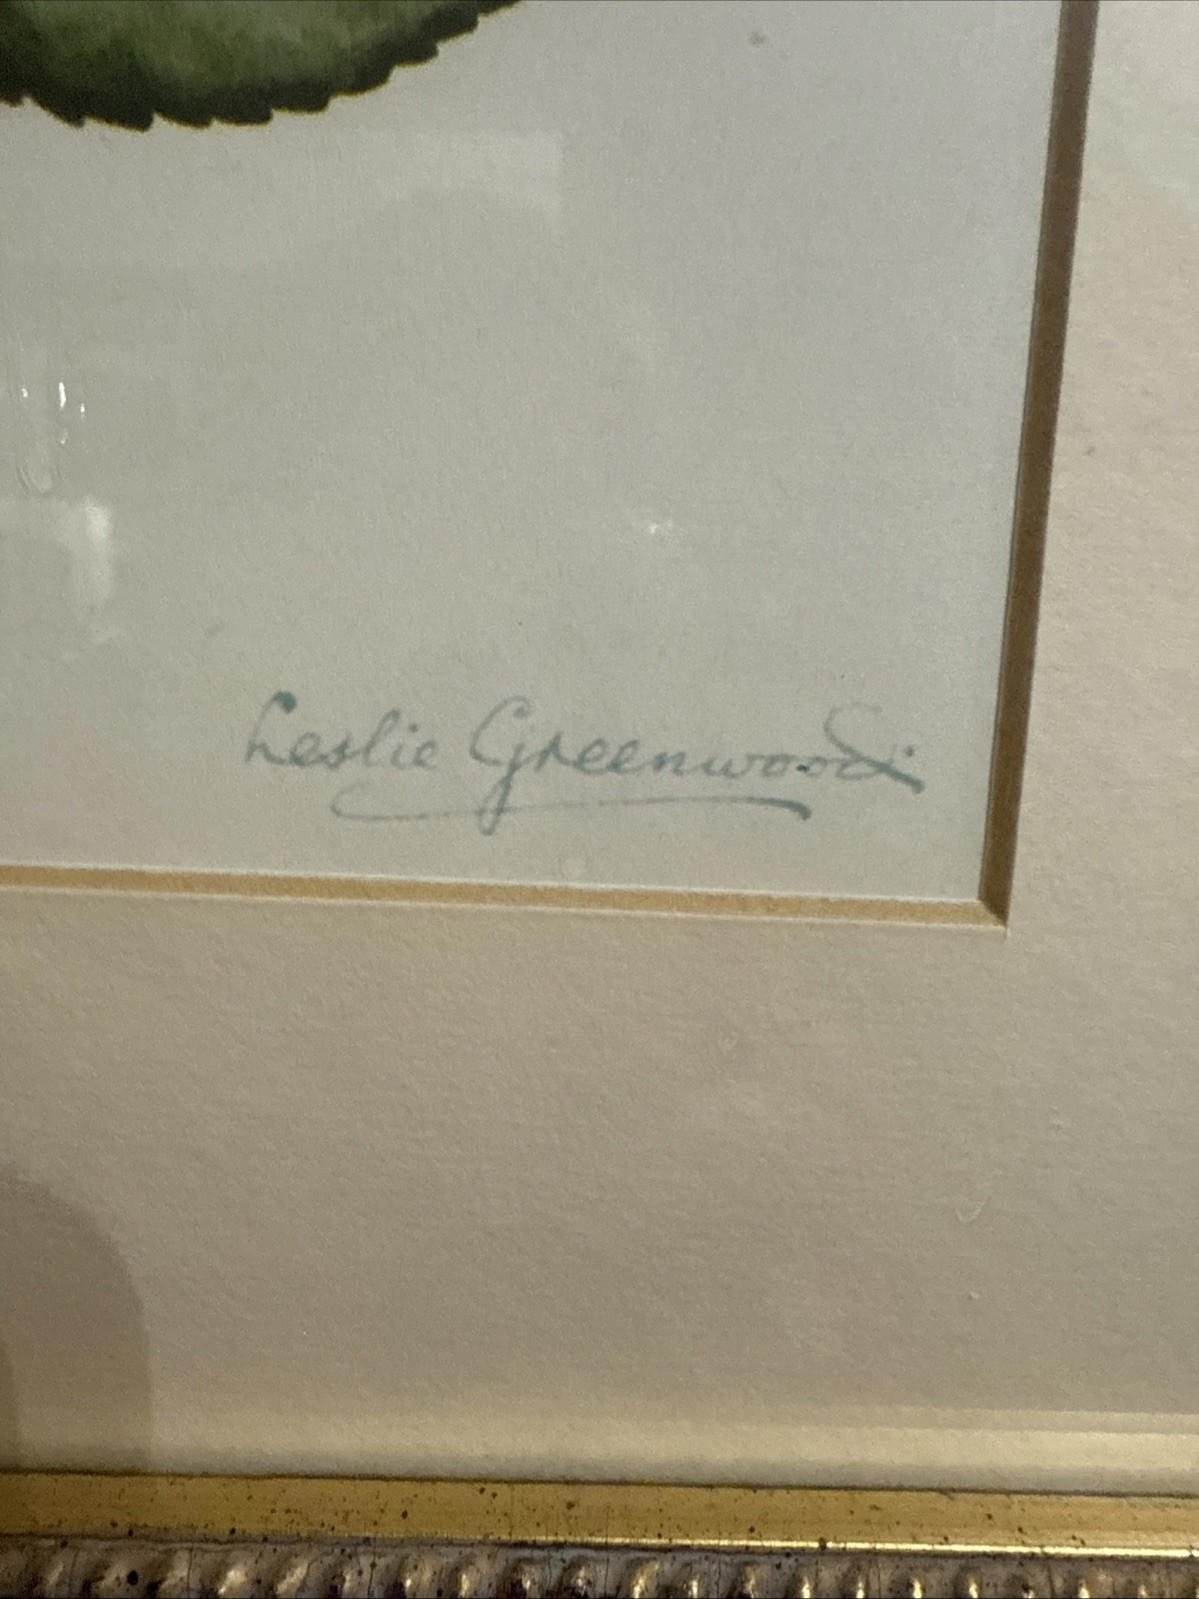 Leslie Greenwood.